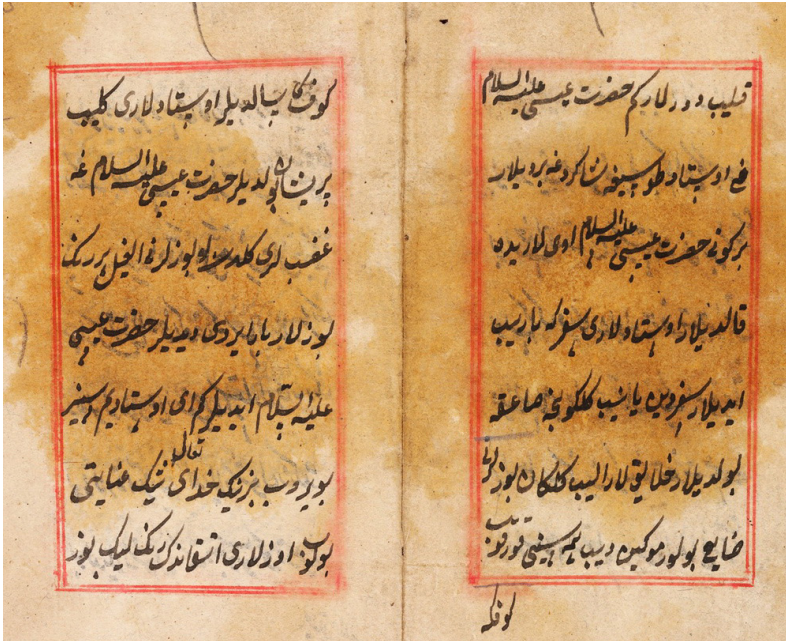 قیلیب دورلار کم حضرت عیسی علیه السلام
نی اوستاد طوسیغه شاکردغه بردیلار
بر کونی حضرت عیسی علیه السلام اوی لاریده
قالدیلار اوستاد لاری سفر که باریب
ایدیلار سفردین یانیب کلکونجه
بولدیلار خلایق لار الیب کلکان بوز لر
ضایع بولور موکین دیب همه سینی
کوفکه
کوف که سالدیلار اوستاد لاری کلیب
پریشان بولدیلر حضرت عیسی علیه السلام غه
غضب لری کلدی بوزلرنی الغیل بر رنک
بوزلار بار ایردی دیدیلر حضرت عیسی
علیه السلام ایدیلر کم ای اوستادیم سیز
بویروب سز نینک خدای تعالی نینک عنایتی
بولوب اوزلاری اتقاندک رنک لیک بوز